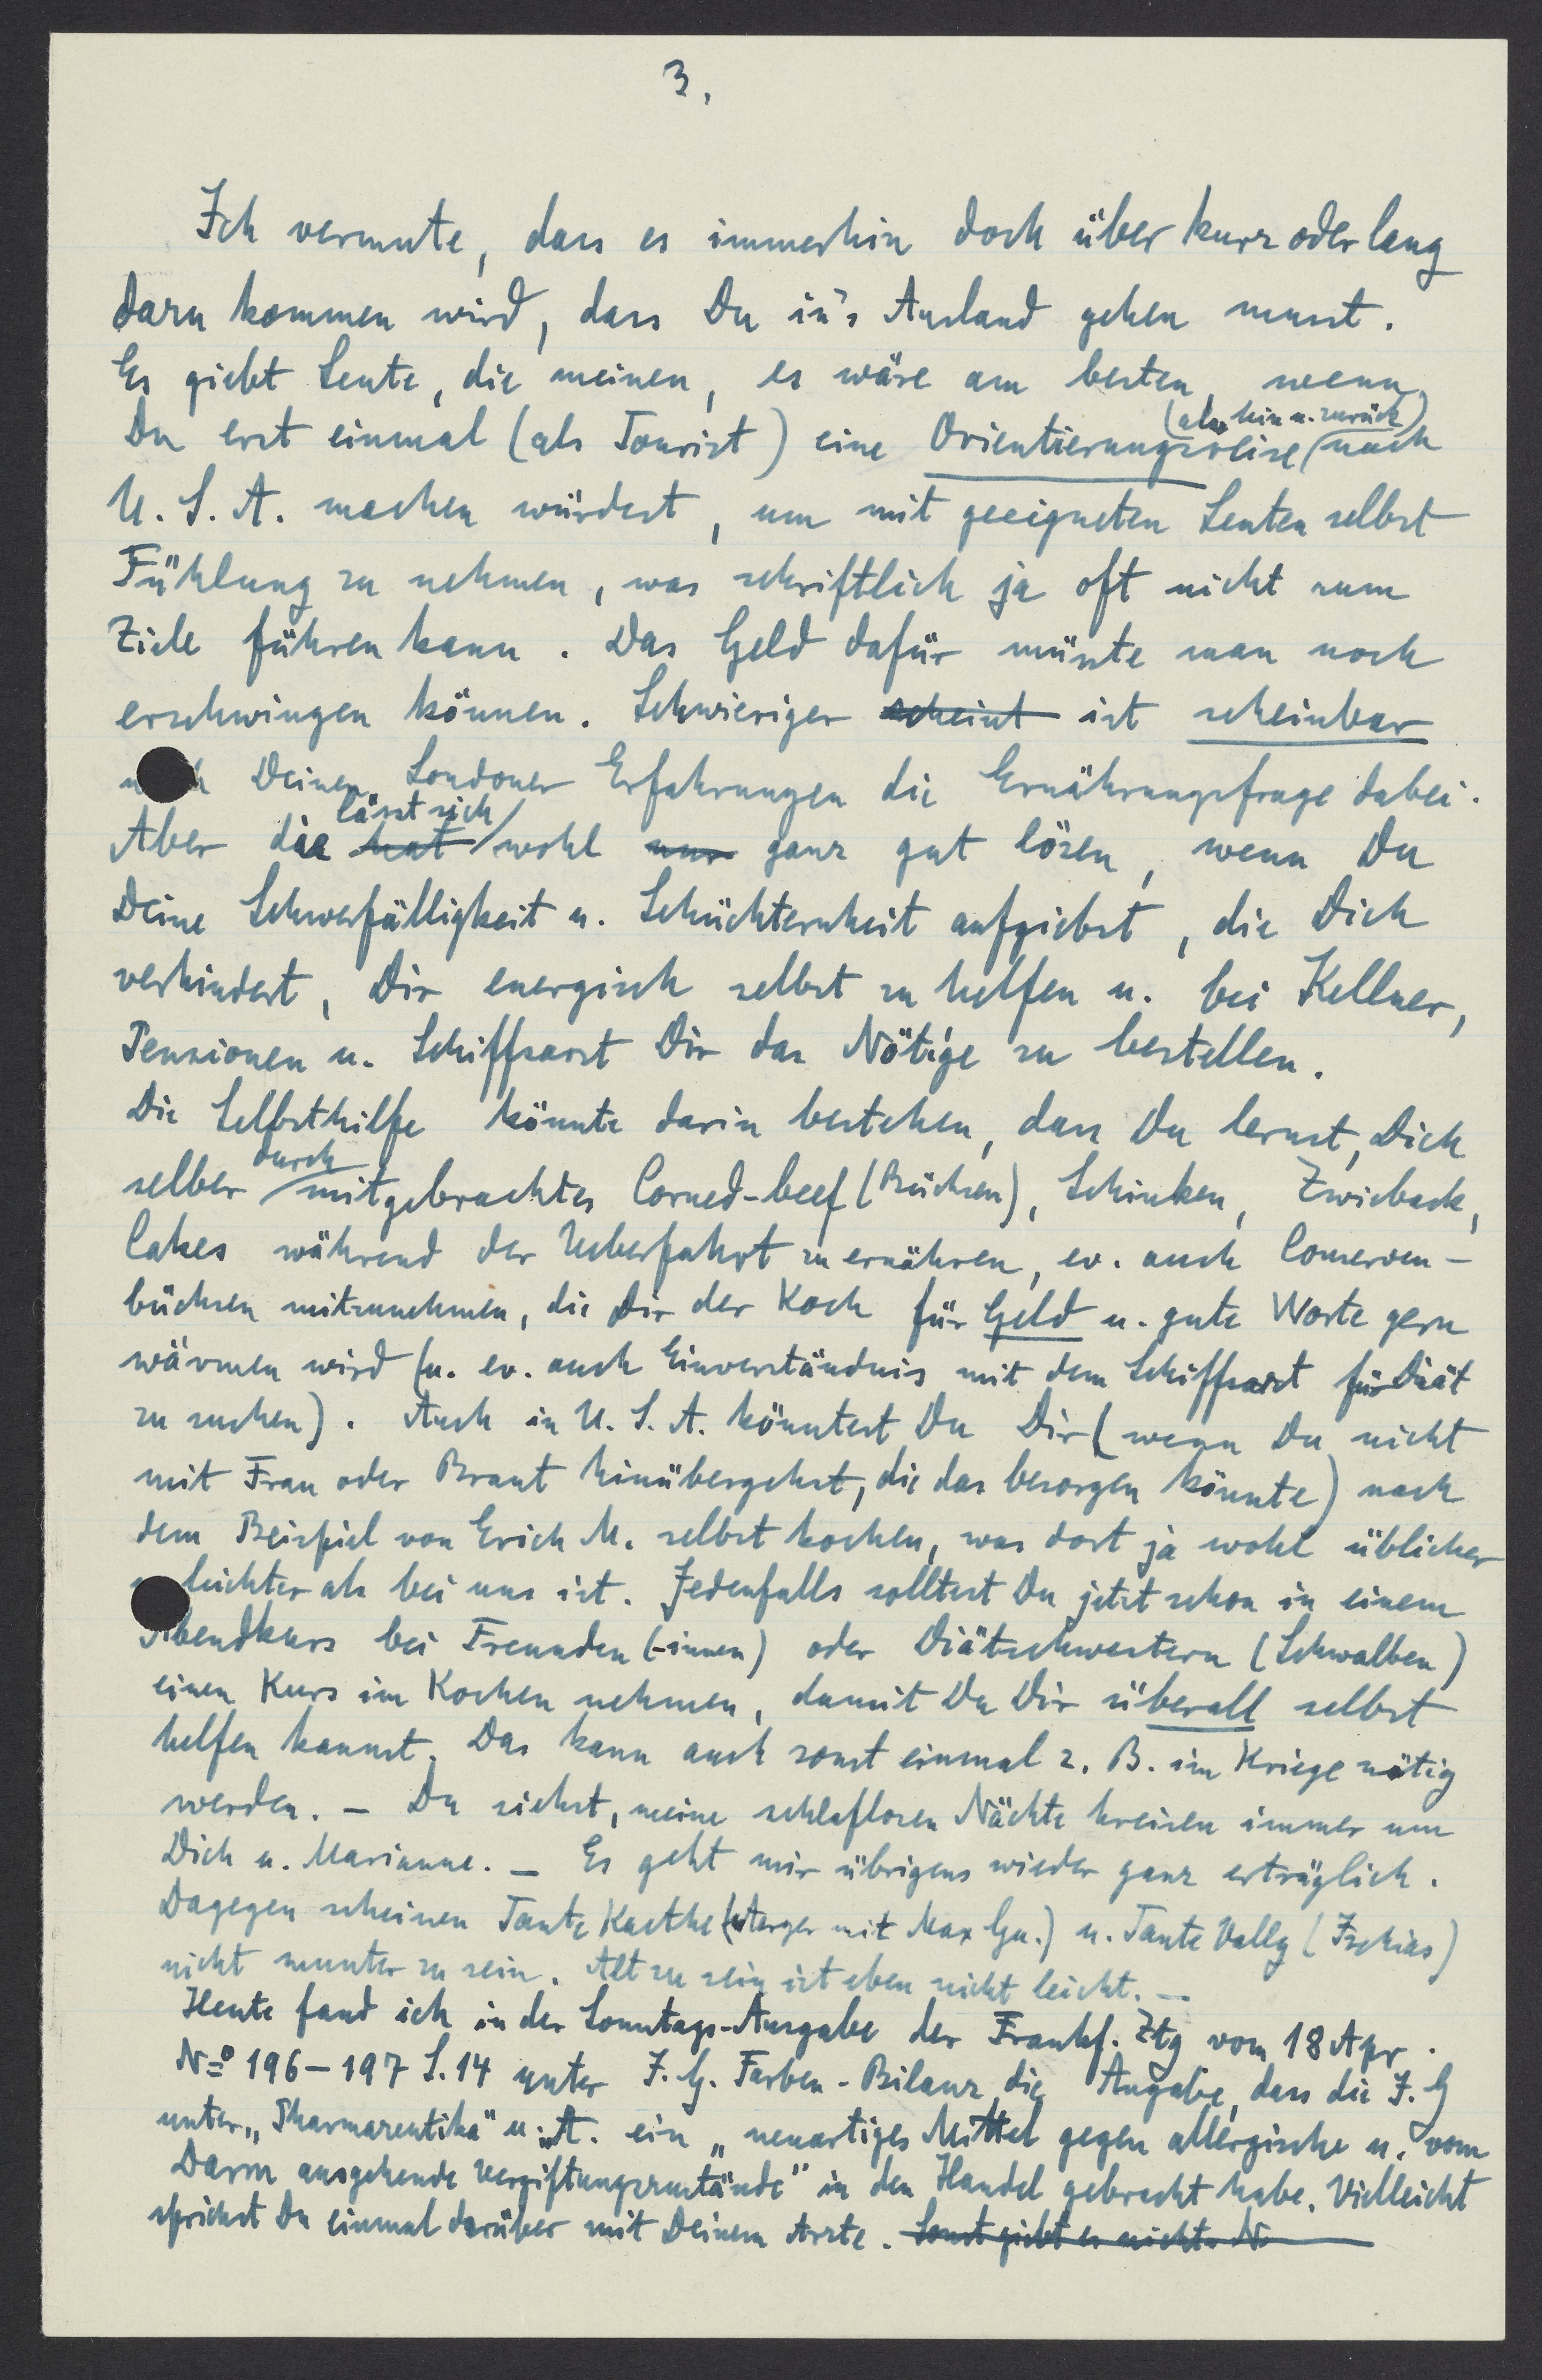 3.
Ich vermute, dass es immerhin doch über kurz oder lang
dazu kommen wird, dass Du in's Ausland gehen musst.
Es giebt Leute, die meinen, es wäre am besten, wenn
Du erst einmal (als Tourist) eine Orientierungsreise (also hin u. zurück) nach
U.S.A. machen würdest, um mit geeigneten Leuten selbst
Fühlung zu nehmen, was schriftlich ja oft nicht zum
Ziele führen kann. Das Geld dafür müsste man noch
erschwingen können. Schwieriger scheint ist scheinbar
Deinen Londoner Erfahrungen die Ernährungsfrage dabei.
Aber die hat lässt sich wohl nur ganz gut lösen, wenn Du
Deine Schwerfälligkeit u. Schüchternheit aufgiebst, die Dich
verhindert, Dir energisch selbst zu helfen u. bei Kellner,
Pensionen u. Schiffsarzt Dir das Nötige zu bestellen.
Die Selbsthilfe könnte darin bestehen, dass Du lernst, Dich
selber durch mitgebrachtes Corned-beef (Büchsen), Schinken, Zwieback,
Cakes während der Ueberfahrt zu ernähren, ev. auch Conserven-
büchsen mitzunehmen, die Dir der Koch für Geld u. gute Worte gern
wärmen wird (u. ev. auch Einverständnis mit dem Schiffsarzt für Diät
zu suchen). Auch in U.S.A. könntest Du Dir (wenn Du nicht
mit Frau oder Braut hinübergehst, die das besorgen könnte) nach
dem Beispiel von Erich M. selbst kochen, was dort ja wohl üblicher
leichter als bei uns ist. Jedenfalls solltest Du jetzt schon in einem
Abendkurs bei Freunden (-innen) oder Diätschwestern (Schwalben)
einen Kurs im Kochen nehmen, damit Du Dir überall selbst
helfen kannst. Das kann auch sonst einmal z. B. im Kriege nötig
werden. – Du siehst, meine schlaflosen Nächte kreisen immer um
Dich u. Marianne. – Es geht mir übrigens wieder ganz erträglich.
Dagegen scheinen Tante Kaethe (Aerger mit Max Gu.) u. Tante Vally (Ischias)
nicht munter zu sein. Alt zu sein ist eben nicht leicht. –
Heute fand ich in der Sonntags-Ausgabe der Frankf. Ztg vom 18 Apr.
No 196–197 S.14 unter I. G. Farben-Bilanz die Angabe, dass die I. G
unter „Pharmazeutika" u. A. ein „neuartiges Mittel gegen allergische u. vom
Darm ausgehende Vergiftungszustände" in den Handel gebracht habe. Vielleicht
sprichst Du einmal darüber mit Deinem Arzte. Sonst giebt es nichts N